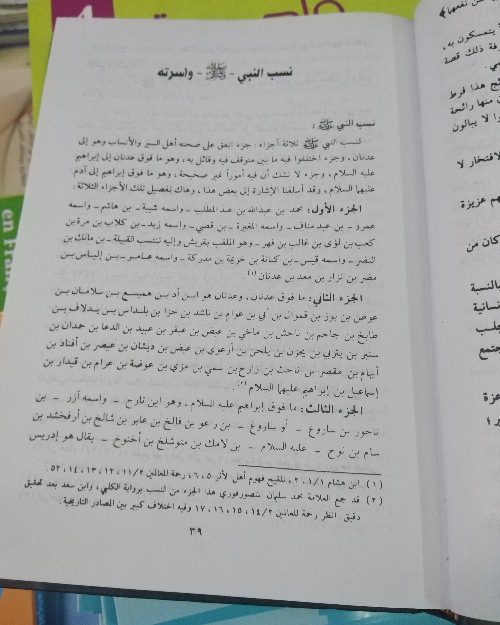 نسب النبي - ﷺ - واسرته
نسب النبي ﷺ :
لنسب النبي ﷺ ثلاثة أجزاء : جزء اتفق على صحته أهل السير والأنساب وهو إلى
عدنان ، وجزء اختلفوا فيه ما بين متوقف فيه وقائل به ، وهو ما فوق عدنان إلى إبراهيم
عليه السلام ، وجزء لا نشك أن فيه أموراً غير صحيحة ، وهو ما فوق إبراهيم إلى آدم
عليهما السلام ، وقد أسلفنا الإشارة إلى بعض هذا ، وهاك تفصيل تلك الأجزاء الثلاثة :
الجزء الأول : محمد بن عبدالله بن عبد المطلب - واسمه شيبة - بن هاشم - واسمه
عمرو - بن عبد مناف - واسمه المغيرة - بن قصي - واسمه زيد - بن كلاب بن مرة بن
كعب بن لؤي بن غالب بن فهر - وهو الملقب بقريش وإليه تنتسب القبيلة - بن مالك بن
النضر - واسمه قيس - بن كنانة بن خزيمة بن مدركة - واسمه عامر - بن إلياس بن
مضر بن نزار بن معد بن عدنان (١) .
الجزء الثاني : ما فوق عدنان ، وعدنان هو ابن أد بن هميسع بن سلامان بن
عوص بن بوز بن قموال بن أبي بن عوام بن ناشد بن حزا بن بلداس بن يدلاف بن
طابخ بن جاحم بن ناحش بن ماخي بن عيض بن عبقر بن عبيد بن الدعا بن حمدان بن
سنبر بن يثربي بن يحزن بن يلحن بن أرعوي بن عيض بن ديشان بن عيصر بن أفناد بن
أيهام بن مقصر بن ناحث بن زارح بن سمي بن مزي بن عوضة بن عرام بن قيدار بن
إسماعيل بن إبراهيم عليهما السلام (٢) .
الجزء الثالث : ما فوق إبراهيم عليه السلام ، وهو ابن تارح - واسمه آزر - بن
ناحور بن ساروع - أو ساروغ - بن راعو بن فالخ بن عابر بن شالخ بن أرفخشد بن
سام بن نوح - عليه السلام - بن لامك بن متوشلخ بن أخنوخ - يقال هو إدريس
(١) ابن هشام ١/١ ، ٢ ، تلقيح فهوم أهل الأثر ٥ ، ٦ ، رحمة للعالمين ١١/٢ ، ١٢ ، ١٣ ، ١٤ ، ٥٢ .
(٢) قد جمع العلامة محمد سلمان المنصورفوري هذا الجزء من النسب برواية الكلبي ، وابن سعد بعد تحقيق
دقيق . انظر رحمة للعالمين ١٤/٢ ، ١٥ ، ١٦ ، ١٧ وفيه اختلاف كبير بين المصادر التاريخية .
٣٩
من نفعهما﴾
يتمسكون به ،
فة ذلك قصة
ج هذا فرط
منها رائحة
ا لا يبالون
لافتخار لا
هم عزيزة
كان من
بالنسبة
نسانية
جلب
جتمع
عزة
en Fran